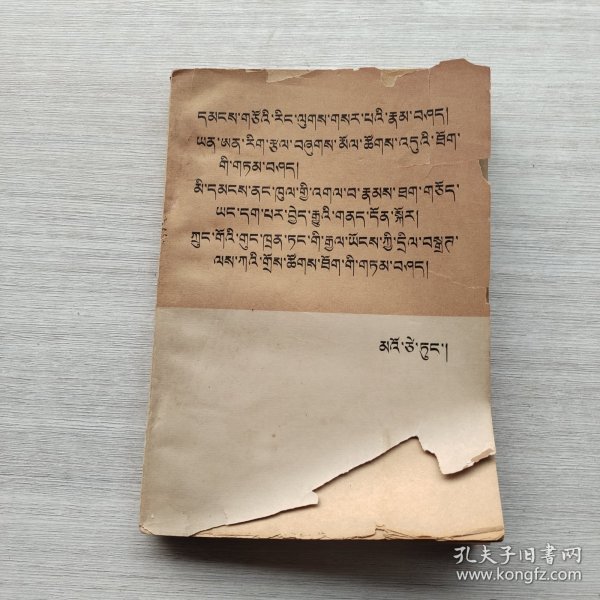 དམངས་གཙོའི་རིང་ལུགས་གསར་པའི་རྣམ་བཤད།
ཡན་ཨན་རིག་རྩལ་བཞུགས་མོལ་ཚོགས་འདུ་འི་ཐོག་
གི་གཏམ་བཤད།
མི་དམངས་ནང་ཁུལ་གྱི་འགལ་བ་རྣམས་ཐག་གཅོད་
ཡང་དག་པར་བྱེད་རྒྱུའི་གནད་དོན་སྐོར།
ཀྲུང་གོའི་གུང་ཁྲན་ཏང་གི་རྒྱལ་ཡོངས་ཀྱི་དྲིལ་བསྒྲགས་
ལས་ཀའི་གྲོས་ཚོགས་ཐོག་གི་གཏམ་བཤད།
མའོ་ཙེ་ཏུང་།
孔夫子旧書网
www.kongfz.com